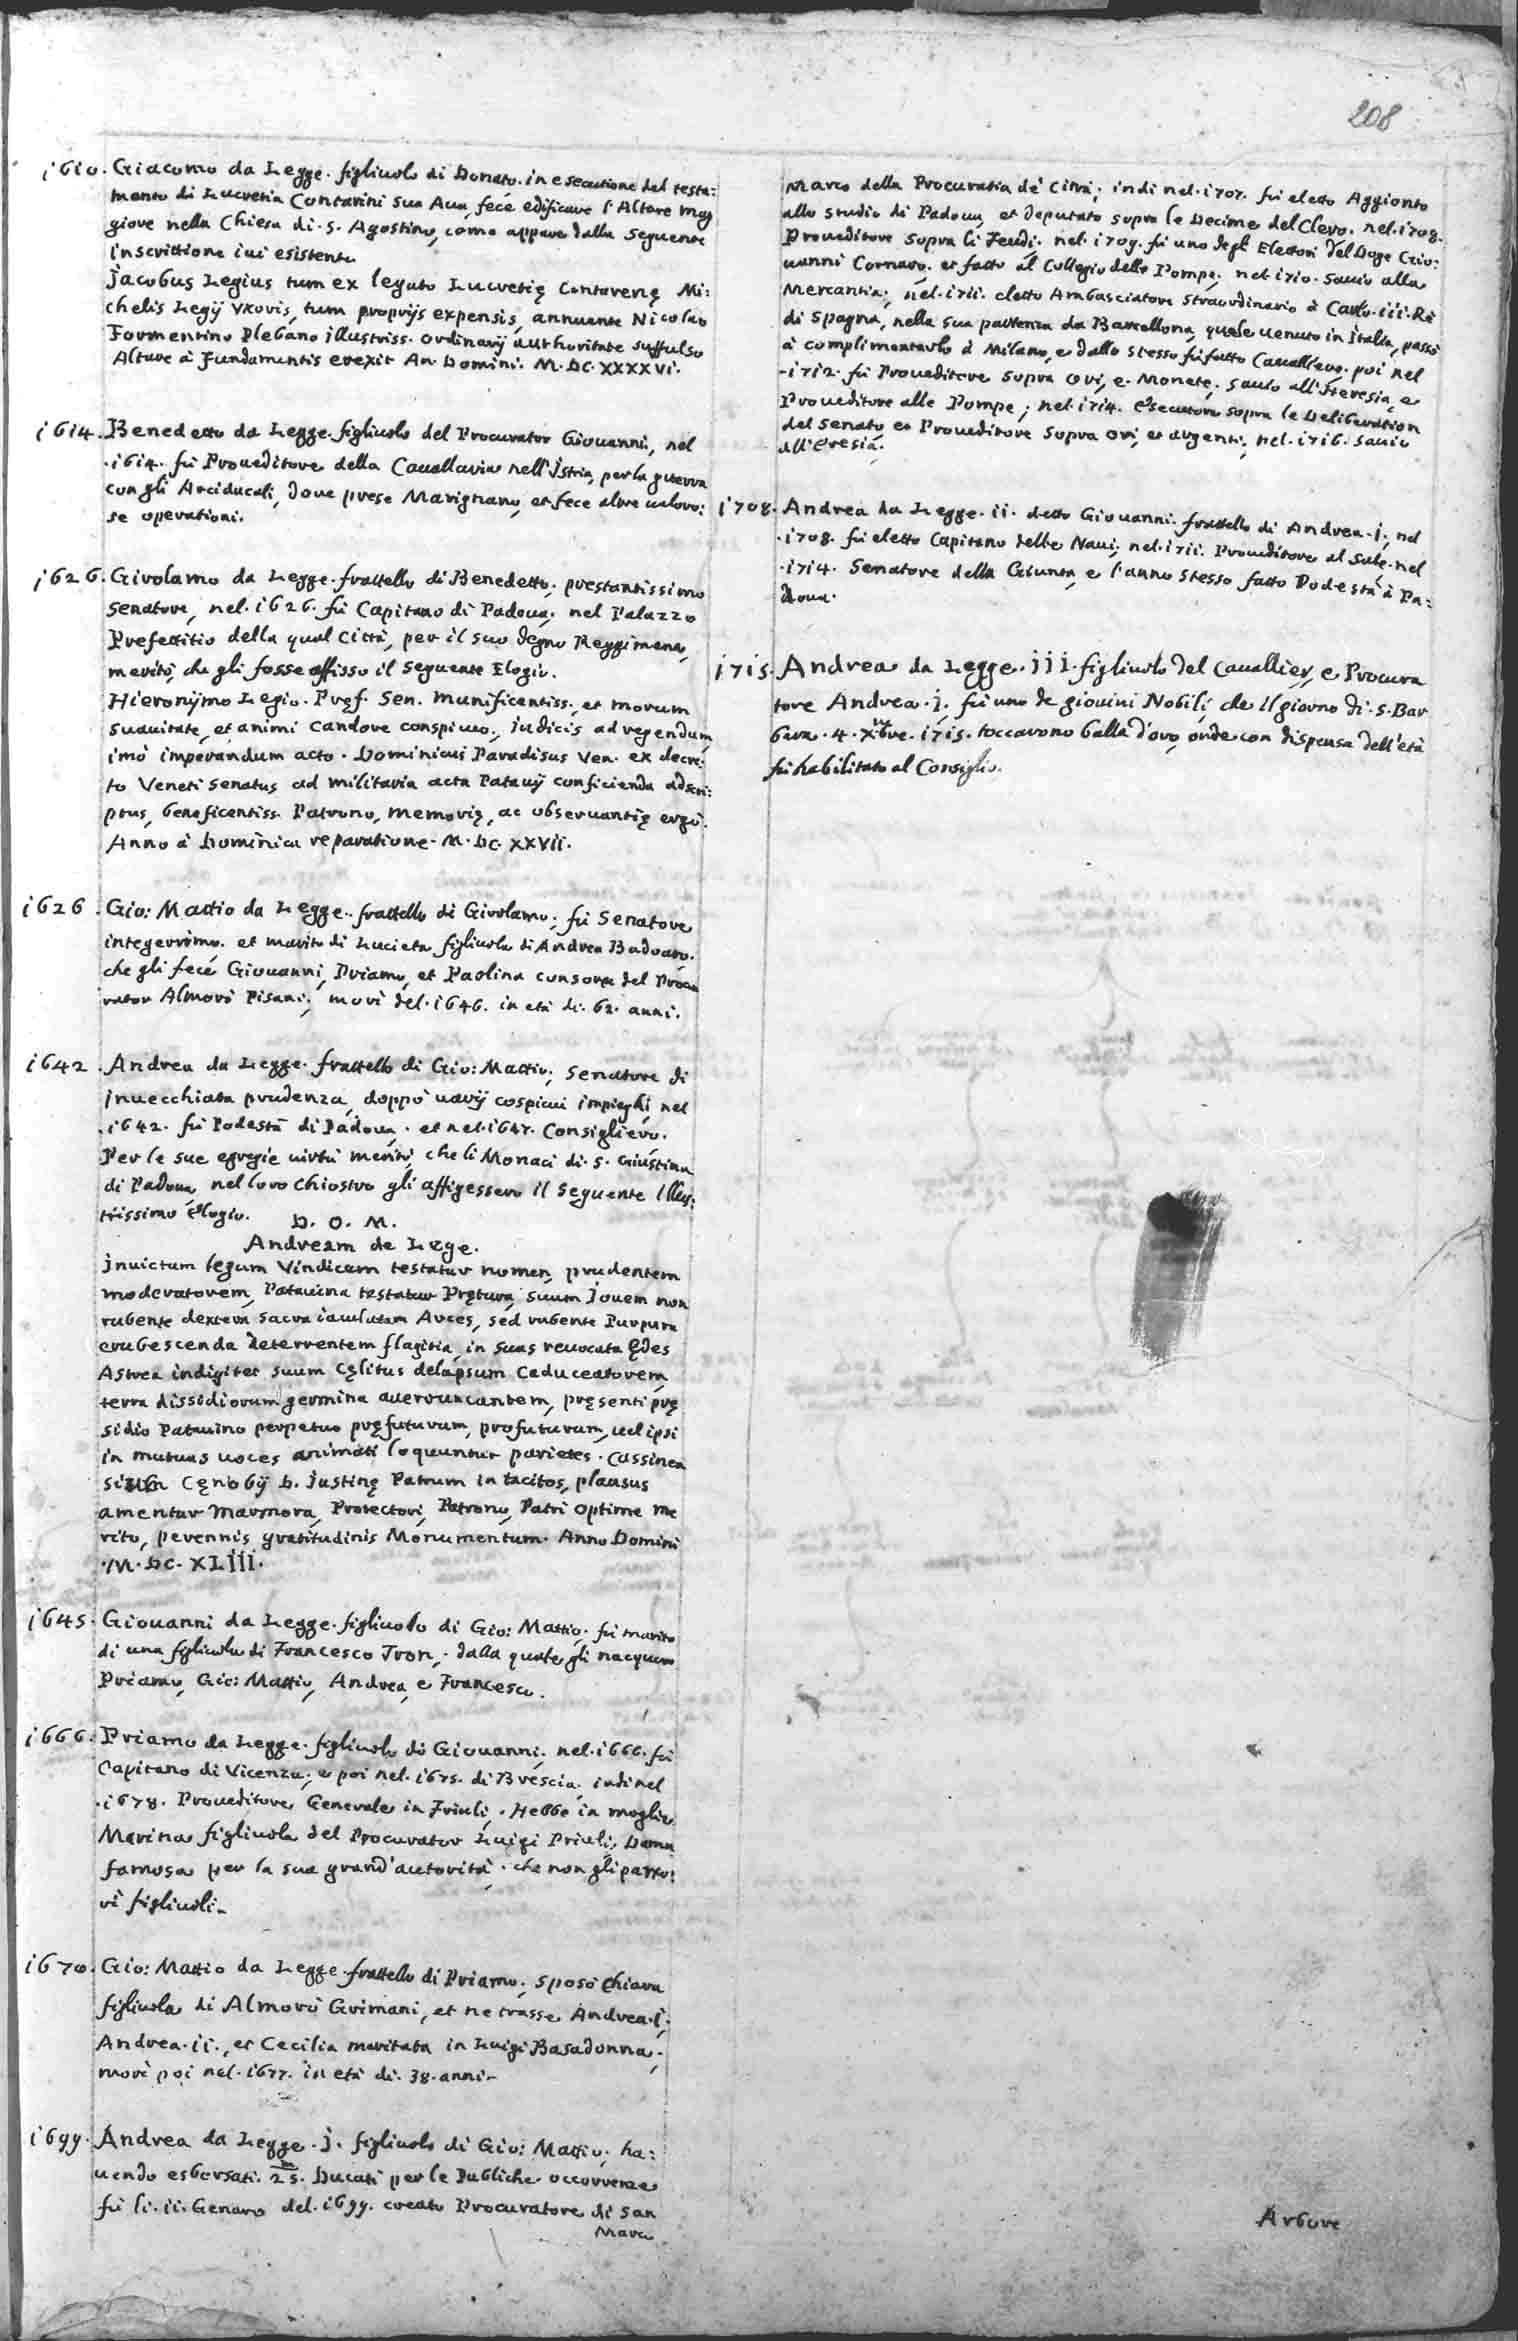 208
1610. Giacomo da Legge. figliuolo di Donato. in esecutione del testa:
mento di Lucretia Contarini sua Aua, fece edificare l'Altare mag
giore nella Chiesa di. S. Agostino, come appare dalla seguente
Inscrittione iui esistente
Jacobus Legius tum ex legato Lucretię Contarenę Mi:
chelis Legij Vxoris, tum proprijs expensis, annuente Nicolao
Formentino Plebano illustriss. Ordinarij authoritate suffulso
Altare à Fundamentis erexit An. Domini. M. DC. XXXXVI.
1614. Benedetto da Legge. figliuolo del Procurator Giouanni, nel
.1614. fù Proueditore della Cauallaria nell'Istria, per la guerra
con gli Arciducali, doue prese Marignano, et fece altre ualoro:
se operationi.
1626. Girolamo da Legge. frattello di Benedetto. prestantissimo
Senatore, nel. 1626. fù Capitano di Padoua. nel Palazzo
Prefettitio della qual Città, per il suo degno Reggimento,
meritò, che gli fosse affisso il seguente Elogio.
Hieronijmo Legio. Pręf. Sen. munificentiss., et morum
suauitate, et animi candore conspicuo, Iudicis ad regendum,
imò imperandum acto. Dominicus Paradisus Ven. ex decre:
to Veneti Senatus ad militaria acta Patauij conficienda adscri:
ptus, beneficentiss. Patrono, memorię, ac obseruantię ergò.
Anno à Dominica reparatione. M. DC. XXVII.
1626. Gio: Mattio da Legge. frattello di Girolamo, fù Senatore
integerrimo. et marito di Lucieta figliuola di Andrea Badoaro.
che gli fece Giouanni, Priamo, et Paolina consorte del Procu
rator Almorò Pisani; morì del. 1646. in età di. 62. anni.
1642. Andrea da Legge. frattello di Gio: Mattio; Senatore di
inuecchiata prudenza, doppò uarij cospicui impieghi, nel
.1642. fù Podestà di Padoua. et nel. 1647. Consigliero.
Per le sue egregie uirtù meritò, che li Monaci di. S. Giustina
di Padoua, nel loro Chiostro gli affigessero il seguente Illus:
trissimo elogio. D. O. M.
Andream de Lege.
Inuictum legum Vindicem testatur nomen, prudentem
moderatorem, Patauina testatur Prętura, suum Jouem non
rubente dextera sacra iaculatum Arces, sed rubente Purpura
erubescenda deterrentem flagitia, in suas reuocata Ędes
Astrea indigitet suum Cęlitus delapsum Caduceatorem,
terra dissidiorum germina auerruncantem, pręsenti prę
sidio Patauino perpetuo pręfuturum, profuturum, uel ipsi
in mutuas uoces animati loquuntur parietes. Cassinen
sium Cęnobij D. Justinę Patrum in tacitos, plausus
amentur Marmora, Protectori, Patrono, Patri optime me
rito, perennis gratitudinis Monumentum. Anno Domini
.M. DC. XLIII.
1645. Giouanni da Legge. figliuolo di Gio: Mattio. fù marito
di una figliuola di Francesco Tron, dalla quale gli nacquero
Priamo, Gio: Mattio, Andrea, e Francesco.
1666. Priamo da Legge. figliuolo di Giouanni. nel. 1666. fù
Capitano di Vicenza, e poi nel. 1675. di Brescia. indi nel
.1678. Proueditore Generale in Friuli. Hebbe in moglie
Marina figliuola del Procurator Luigi Priuli, Dama
famosa per la sua grand'autorità. che non gli parto:
rì figliuoli.
1670. Gio: Mattio da Legge. frattello di Priamo, sposò Chiara
figliuola di Almorò Grimani, et ne trasse Andrea. I.
Andrea. II., et Cecilia maritata in Luigi Basadonna.
morì poi nel. 1677. in età di. 38. anni.
1699. Andrea da Legge. I. figliuolo di Gio: Mattio, ha:
uendo esborsati. 25. m Ducati per le Publiche occorrenze
fù li. 11. Genaro del. 1699. creato Procuratore di San
Marco
Marco della Procuratia de Citrà; indi nel. 1707. fù eletto Aggionto
allo studio di Padoua, et deputato sopra le Decime del Clero. nel. 1708.
Proueditore sopra li Feudi. nel. 1709. fù uno degl'Elettori del Doge Gio:
uanni Cornaro. et fatto al Collegio delle Pompe. nel. 1710. Sauio alla
Mercantia; nel. 1711. eletto Ambasciatore straordinario à Carlo. III. Rè
di Spagna, nella sua partenza da Barcellona, quale uenuto in Italia, passò
à complimentarlo à Milano, e dallo stesso fù fatto Caualliero. poi nel
.1712. fù Proueditore sopra Ori, e Monete, Sauio all'Heresia, e
Proueditore alle Pompe; nel. 1714. Esecutore sopra le Deliberation
del Senato et Proueditore sopra Ori, et argenti, nel. 1716. Sauio
all'Eresia.
1708. Andrea da Legge. II. detto Giouanni. frattello di Andrea. I., nel
.1708. fù eletto Capitano delle Naui, nel. 1711. Proueditore al Sale. nel
.1714. Senatore della Giunta, e l'anno stesso fatto Podestà à Pa:
doua.
1715. Andrea da Legge. III. figliuolo del Cauallier, e Procura
tore Andrea. I. fù uno de giouini Nobili, che il giorno di. S. Bar
bara. 4. Xbre. 1715. toccarono balla d'oro, onde con dispensa dell'età
fù habilitato al Consiglio.
Arbore